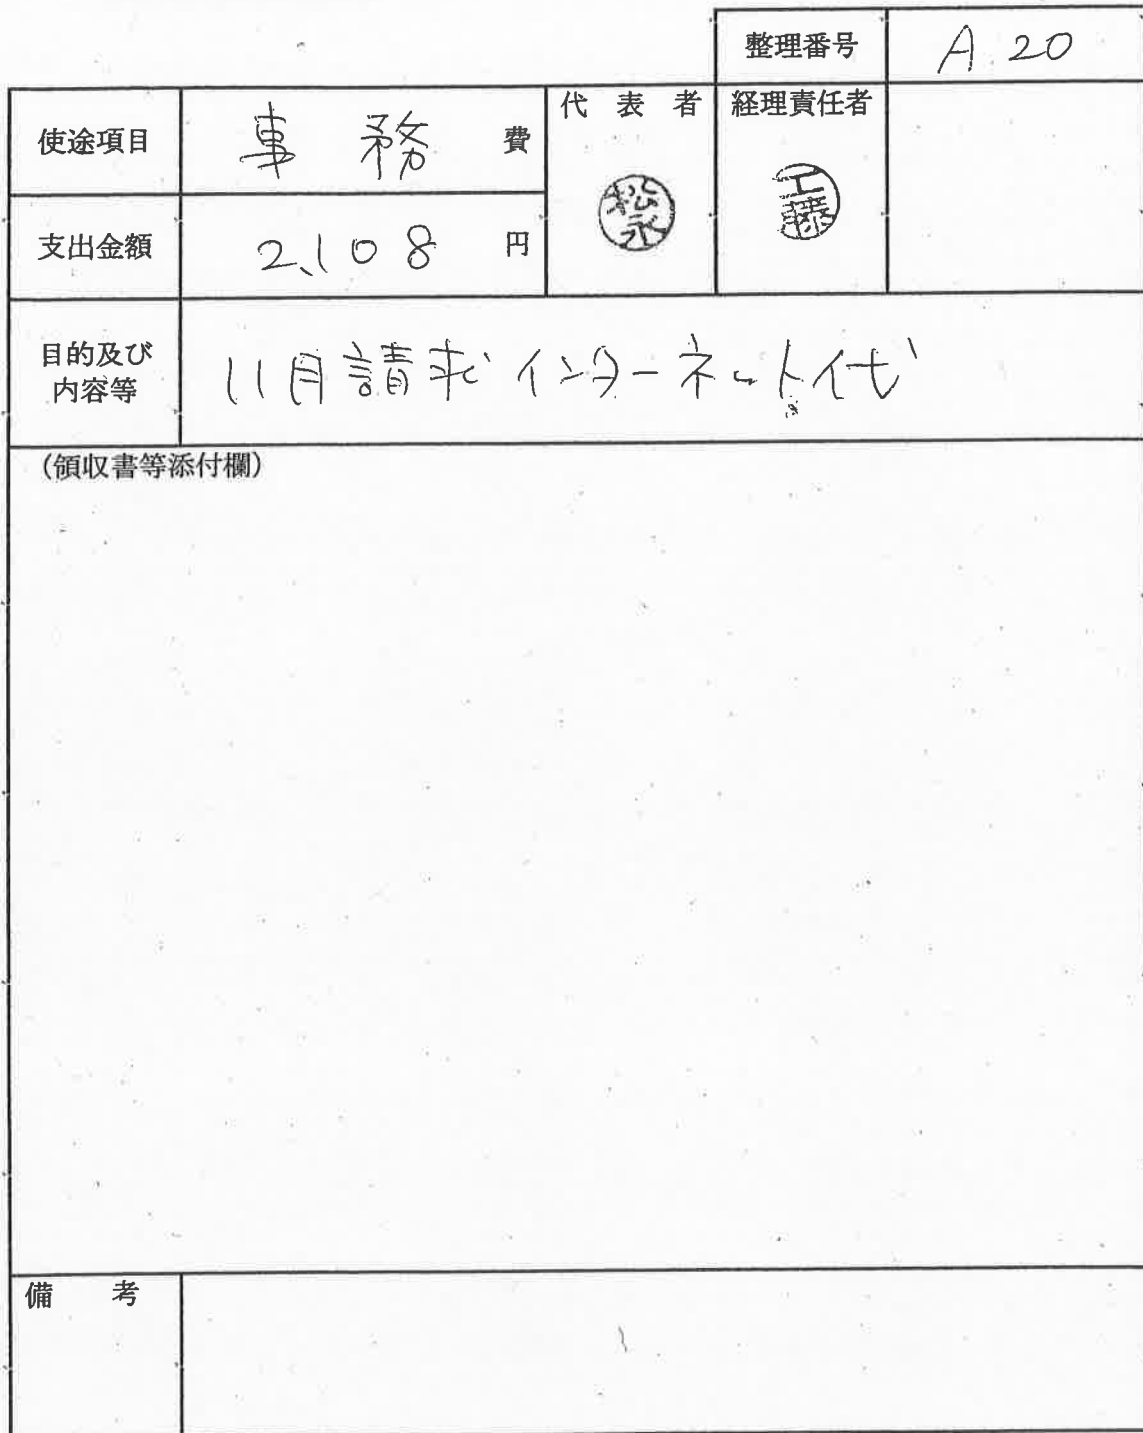 整理番号 A 20
使途項目 事務費 代表者 経理責任者
松永 工藤
支出金額 2,108 円
目的及び内容等 11月請求インターネット代
(領収書等添付欄)
備考